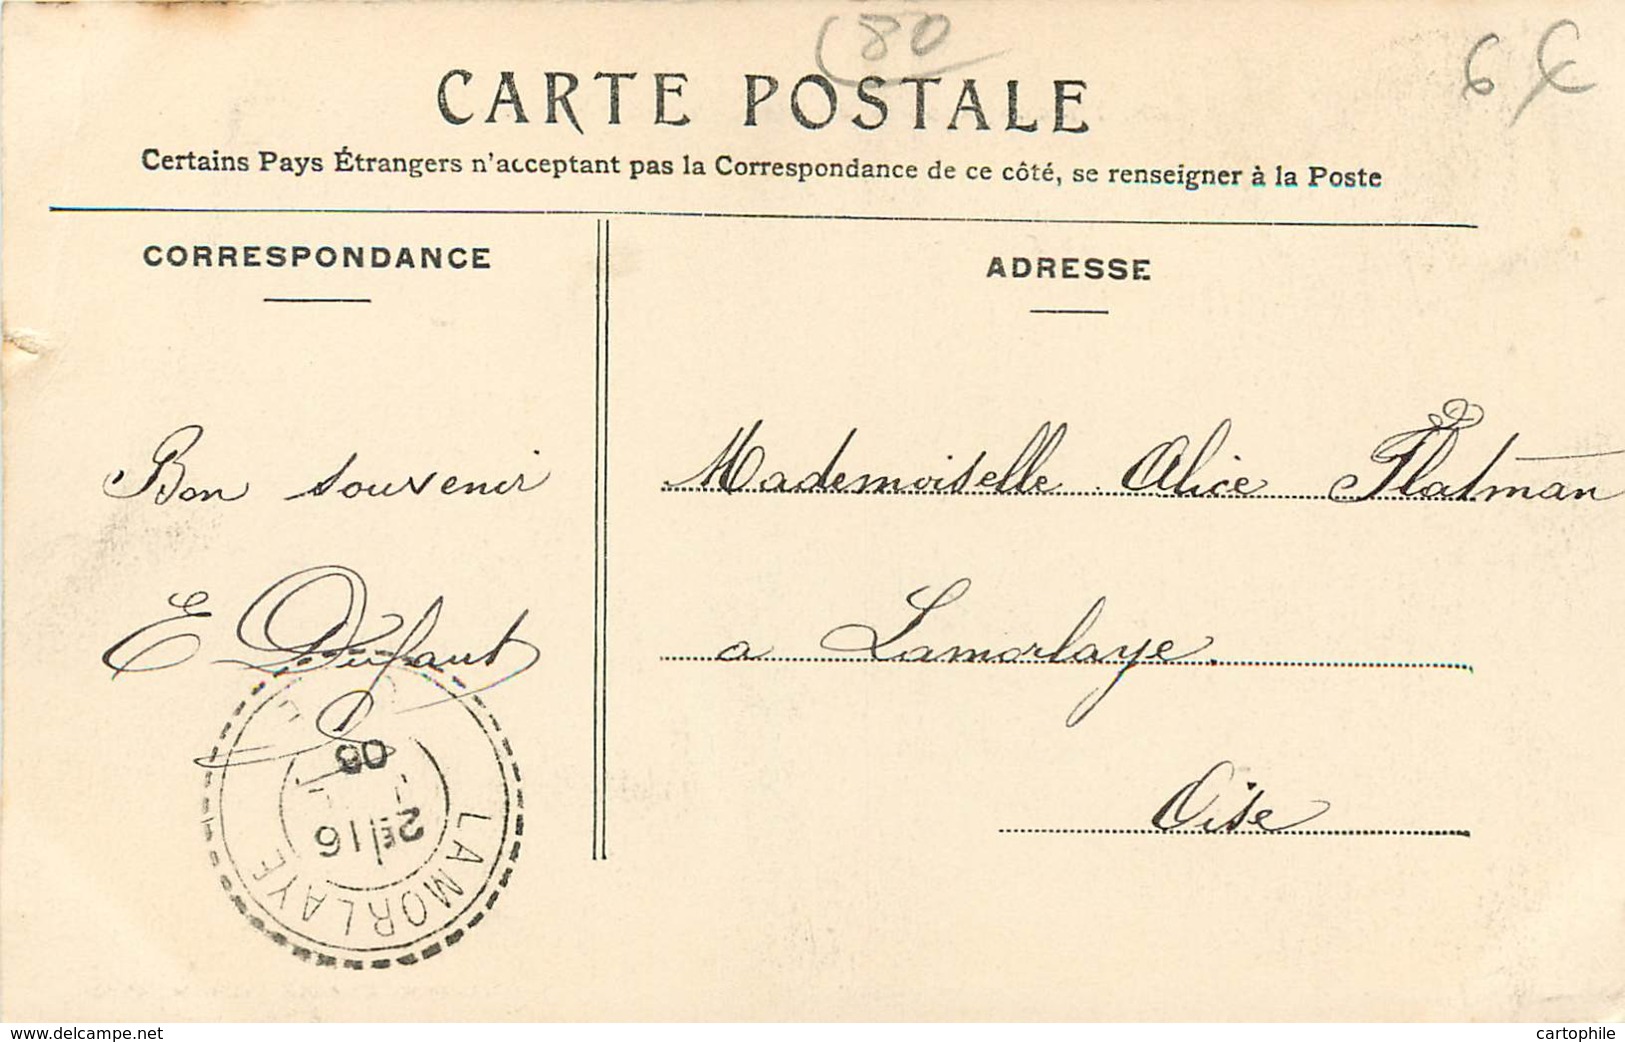 80
6 €
CARTE POSTALE
Certains Pays Étrangers n'acceptant pas la Correspondance de ce côté, se renseigner à la Poste
CORRESPONDANCE
ADRESSE
Bon souvenir
E Dufaut
Mademoiselle Alice Flatman
a Lamorlaye.
Oise
LAMORLAYE
2E / 16
www.delcampe.net
cartophile